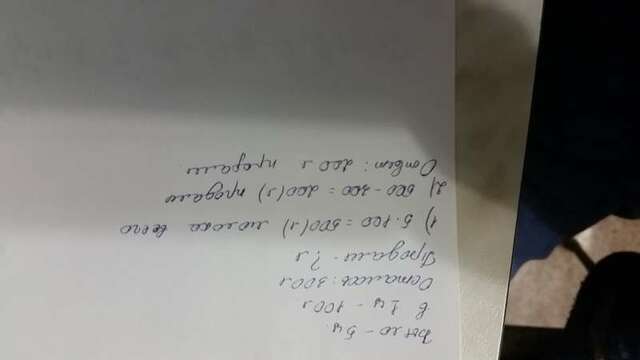 Было - 5ц.
в 1ц - 100л
Осталось: 300л
Продали - ? л
1) 5·100=500(л) молока всего
2) 500-300=200(л) продали
Ответ: 200л продали.